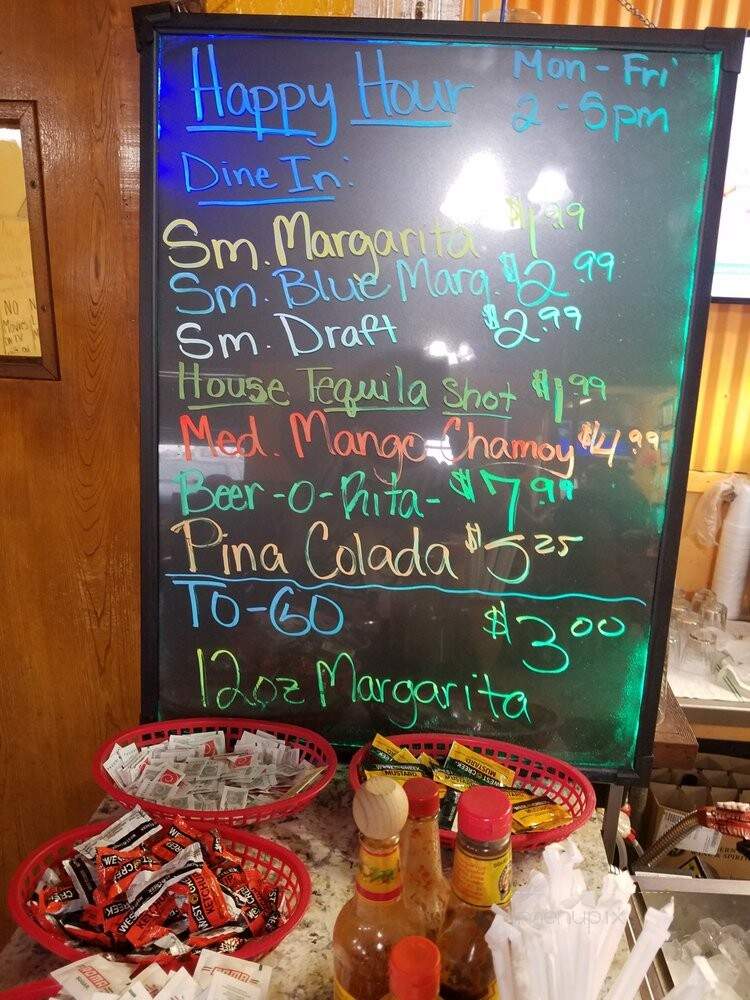 Happy Hour Mon - Fri
2 - 5pm
Dine In:
Sm. Margarita $1.99
Sm. Blue Marg. $2.99
Sm. Draft $2.99
House Tequila Shot $1.99
Med. Mango Chamoy $4.99
Beer-O-Rita- $7.99
Pina Colada $5.25
TO-GO $3.00
12oz Margarita
NO
MUSTARD
WEST CREEK
KETCHUP